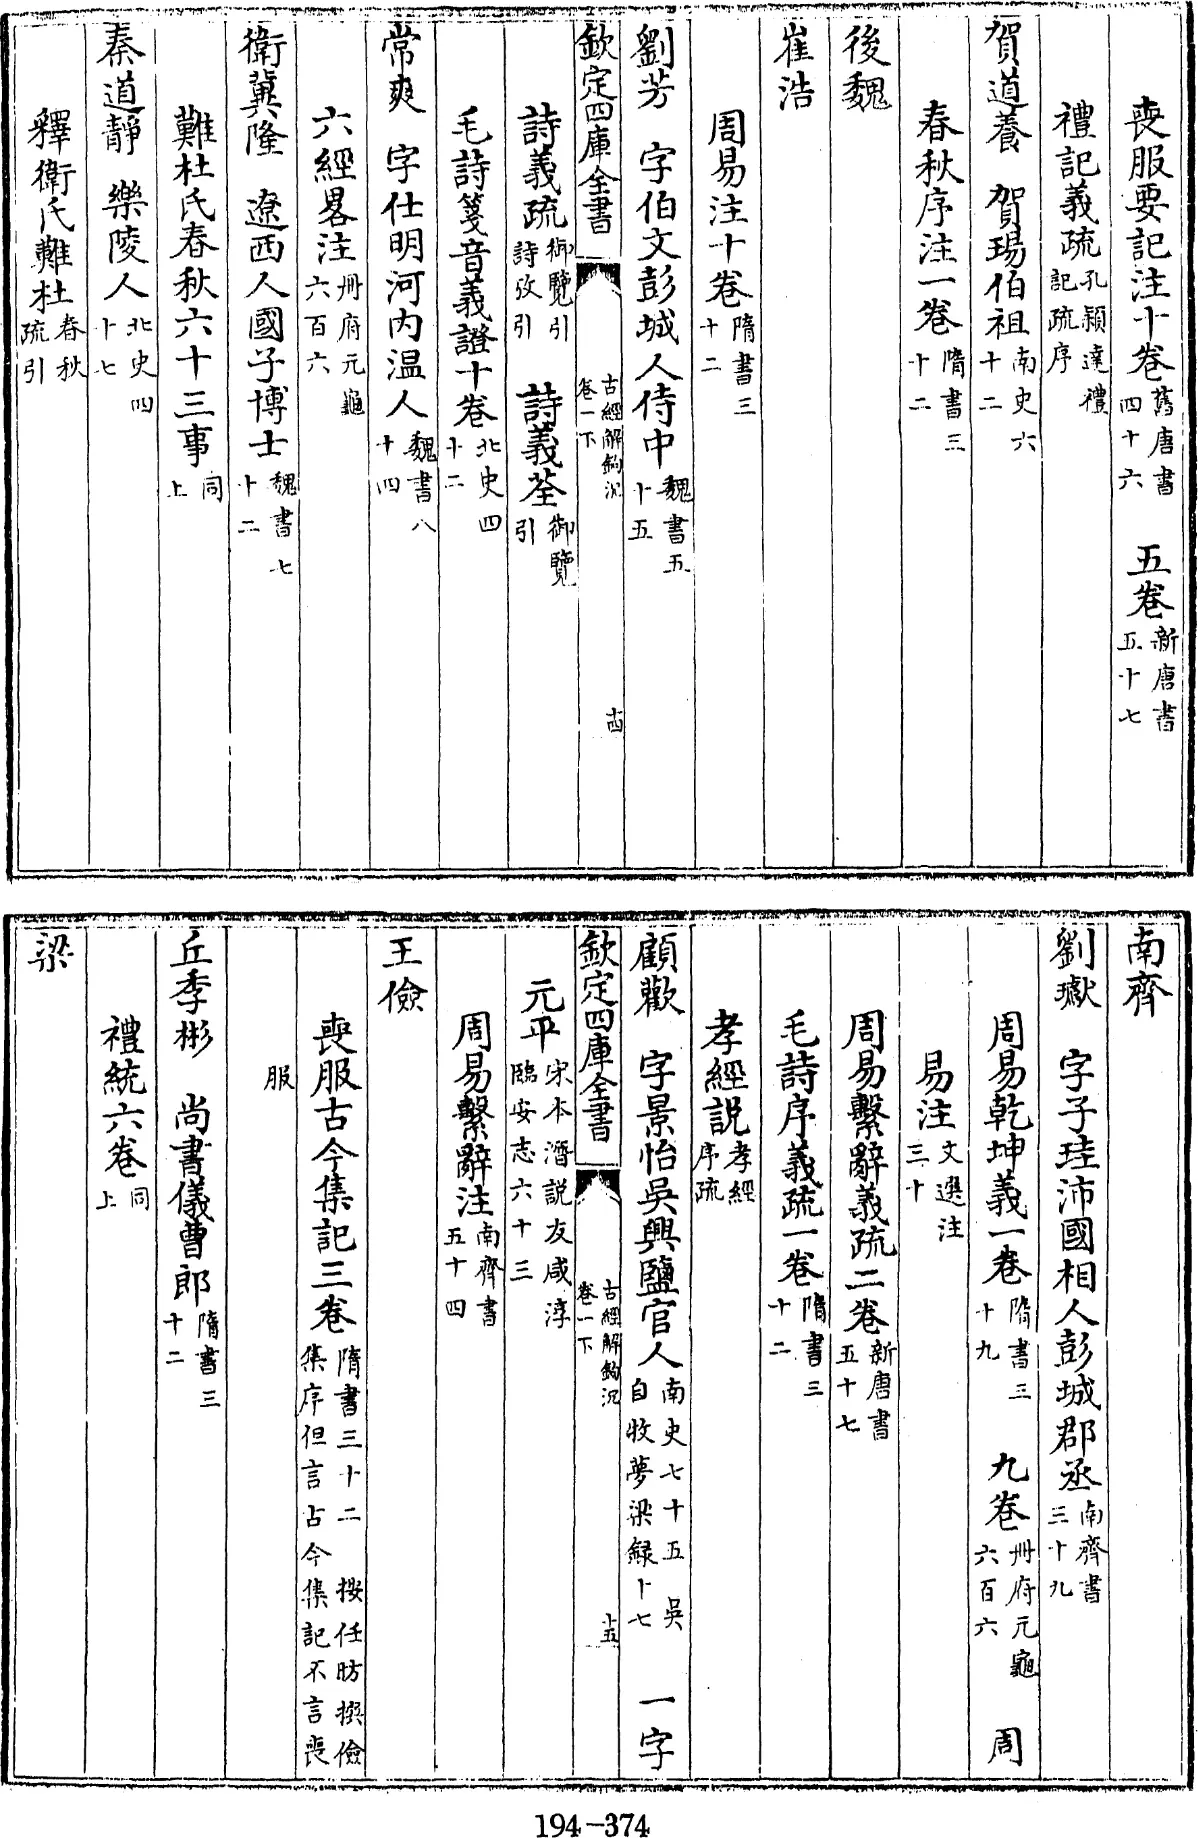 喪服要記注十卷舊唐書四十六 五卷新唐書五十七
禮記義疏孔頴達禮記疏序
賀道養 賀瑒伯祖南史六十二
春秋序注一卷隋書三十二
後魏
崔浩
周易注十卷隋書三十二
劉芳 字伯文彭城人侍中魏書五十五
欽定四庫全書 古經解鉤沉卷一下 十四
詩義疏御覽引詩攷引 詩義荃御覽引
毛詩箋音義證十卷北史四十二
常爽 字仕明河内温人魏書八十四
六經畧注冊府元龜六百六
衛冀隆 遼西人國子博士魏書七十二
難杜氏春秋六十三事同上
秦道靜 樂陵人北史四十七
釋衛氏難杜春秋疏引
南齊
劉瓛 字子珪沛國相人彭城郡丞南齊書三十九
周易乾坤義一卷隋書三十九 九卷冊府元龜六百六 周
易注文選注三十
周易繫辭義疏二卷新唐書五十七
毛詩序義疏一卷隋書三十二
孝經説孝經序疏
顧歡 字景怡吳興鹽官人南史七十五 吳自牧夢梁録十七 一字
欽定四庫全書 古經解鉤沉卷一下 十五
元平宋本潛説友咸淳臨安志六十三
周易繫辭注南齊書五十四
王儉
喪服古今集記三卷隋書三十二 按任昉撰儉集序但言古今集記不言喪
服
丘季彬 尚書儀曹郎隋書三十二
禮統六卷同上
梁
194-374